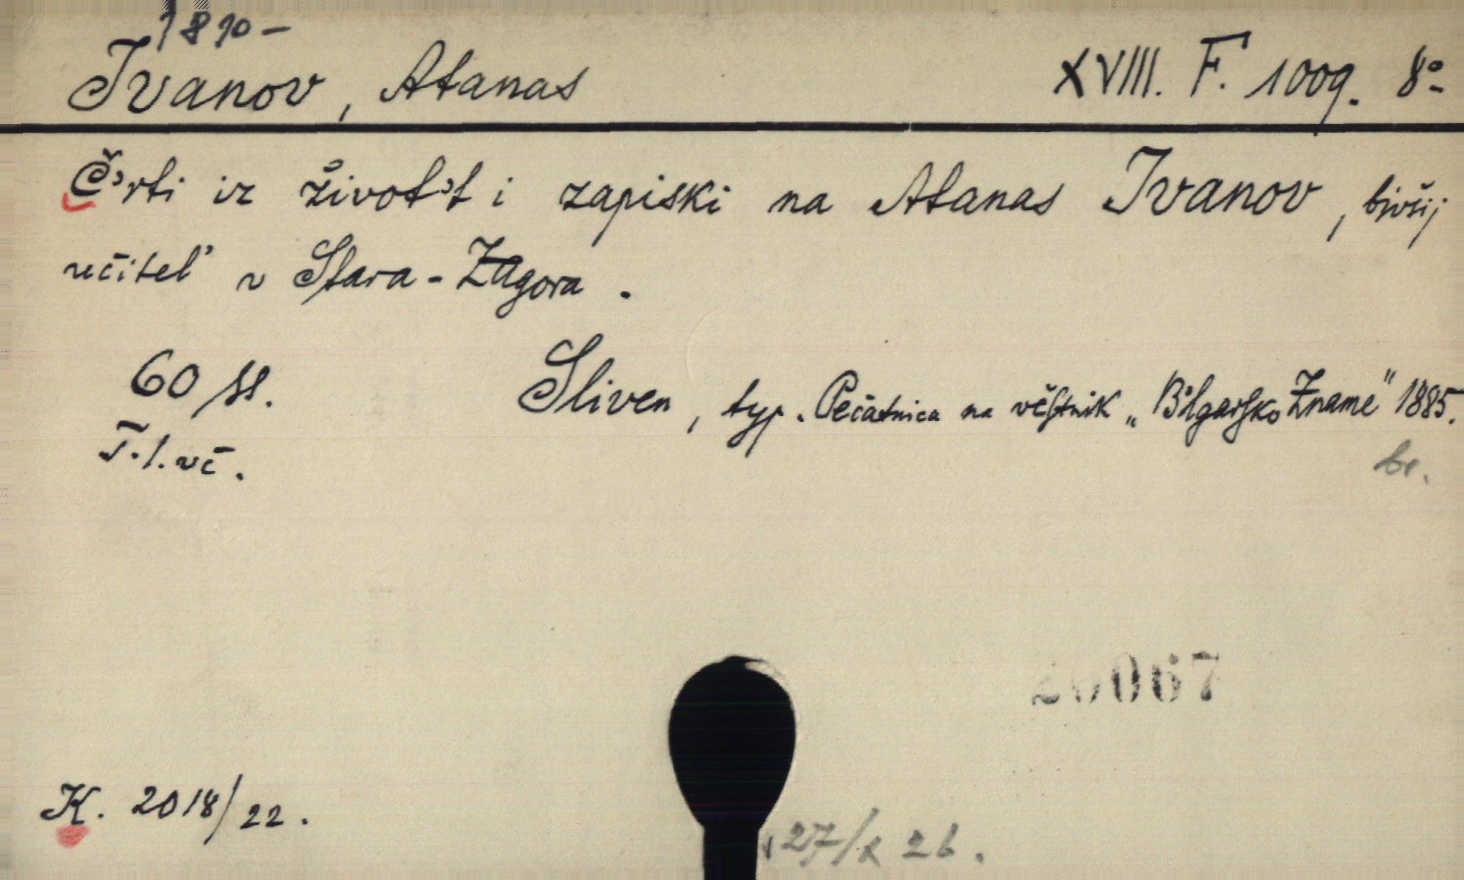 1810-
Ivanov, Atanas XVIII. F. 1009. 8°
Č'rti iz život't i zapiski na Atanas Ivanov, bivšij
učitel' v Stara-Zagora.
60 ss. Sliven, typ. Pečatnica na věstnik „B'lgarsko Zname" 1885.
T. l. vč. br.
20067
K. 2018/22.
27/X 26.